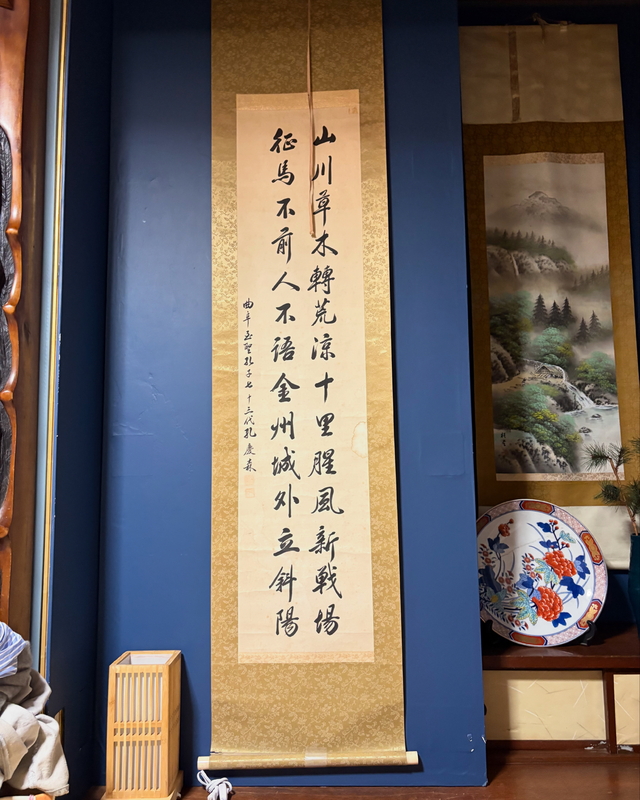 山川草木轉荒涼十里腥風新戰場
征馬不前人不語金州城外立斜陽
曲阜至聖孔子七十三代孔慶森